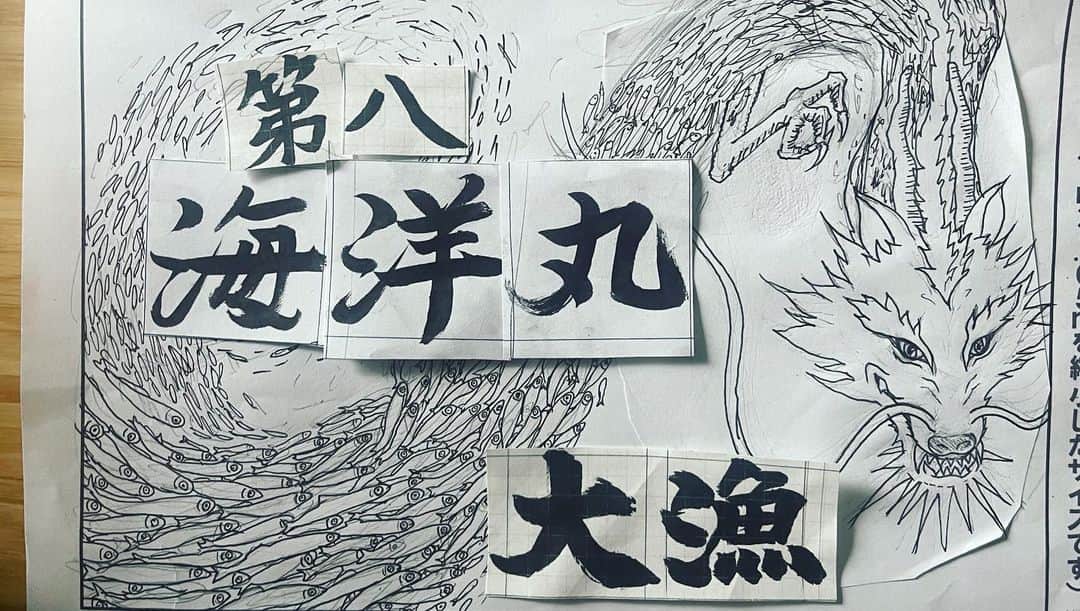 第八
海洋丸
大漁
を縮小したサイズです)